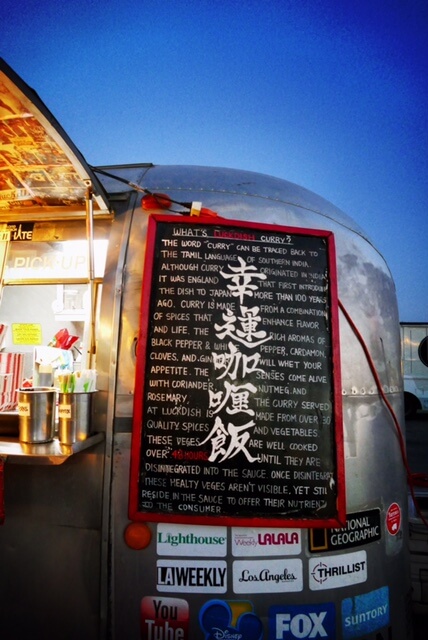 PICK-UP
WHAT'S LUCKDISH CURRY?
THE WORD "CURRY" CAN BE TRACED BACK TO
THE TAMIL LANGUAGE OF SOUTHERN INDIA.
ALTHOUGH CURRY ORIGINATED IN INDIA
IT WAS ENGLAND THAT FIRST INTRODU
THE DISH TO JAPAN MORE THAN 100 YEARS
AGO. CURRY IS MADE FROM A COMBINATION
OF SPICES THAT ENHANCE FLAVOR
AND LIFE. THE RICH AROMAS OF
BLACK PEPPER & WHI PEPPER, CARDAMON,
CLOVES, AND GIN WILL WHET YOUR
APPETITE. THE SENSES COME ALIVE
WITH CORIANDER NUTMEG, AND
ROSEMARY. THE CURRY SERVED
AT LUCKDISH IS MADE FROM OVER 30
QUALITY SPICES AND VEGETABLES
THESE VEGES ARE WELL COOKED
OVER 48 HOURS UNTIL THEY ARE
DISINTEGRATED INTO THE SAUCE. ONCE DISINTEGR
THESE HEALTY VEGES AREN'T VISIBLE, YET STILL
RESIDE IN THE SAUCE TO OFFER THEIR NUTRIENT
TO THE CONSUMER.
幸運咖喱飯
Lighthouse
Weekly LALALA
NATIONAL
GEOGRAPHIC
LAWEEKLY
Los Angeles
THRILLIST
You
Tube
DISNEY
FOX
SUNTORY